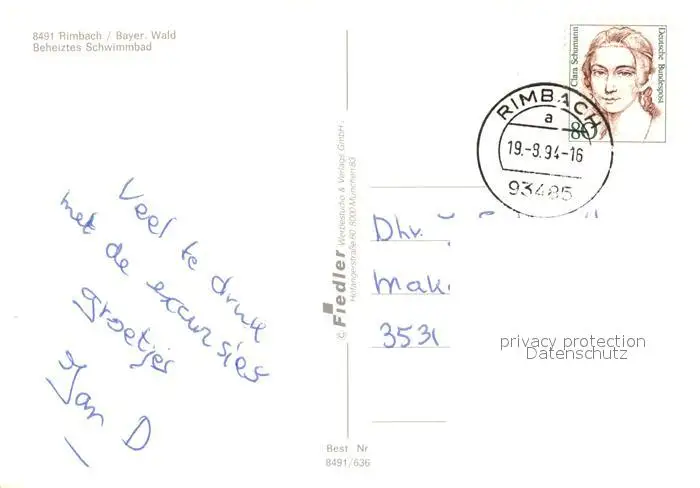 8491 Rimbach / Bayer. Wald
Beheiztes Schwimmbad
Veel te druk
met de excursies
groetjes
Jan D
© Fiedler Werbestudio & Verlags GmbH.
Hofangerstraße 80 8000 München 83
Best Nr
8491/636
Clara Schumann
Deutsche Bundespost
80
RIMBACH
a
19.-9.94-16
93485
Dhr.
Mak
3531
privacy protection
Datenschutz